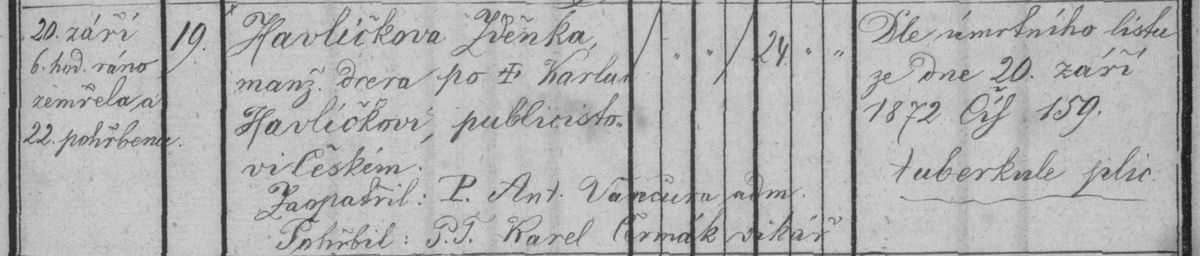 20. září
6. hod. ráno
zemřela, a
22. pohřbena.
19.
Havlíčkova Zdeňka,
manž. dcera po † Karlu
Havlíčkovi, publicisto-
vi Českém.
Zaopatřil: P. Ant. Vančura adm.
Pohřbil: P.T. Karel Čermák vikář
/ " " / 24. " "
Dle úmrtního listu
ze dne 20. září
1872 Čís 159.
tuberkule plic.